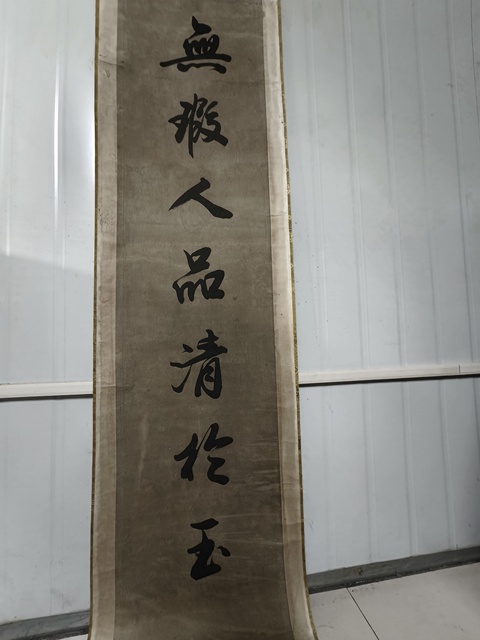 無瑕人品清於玉